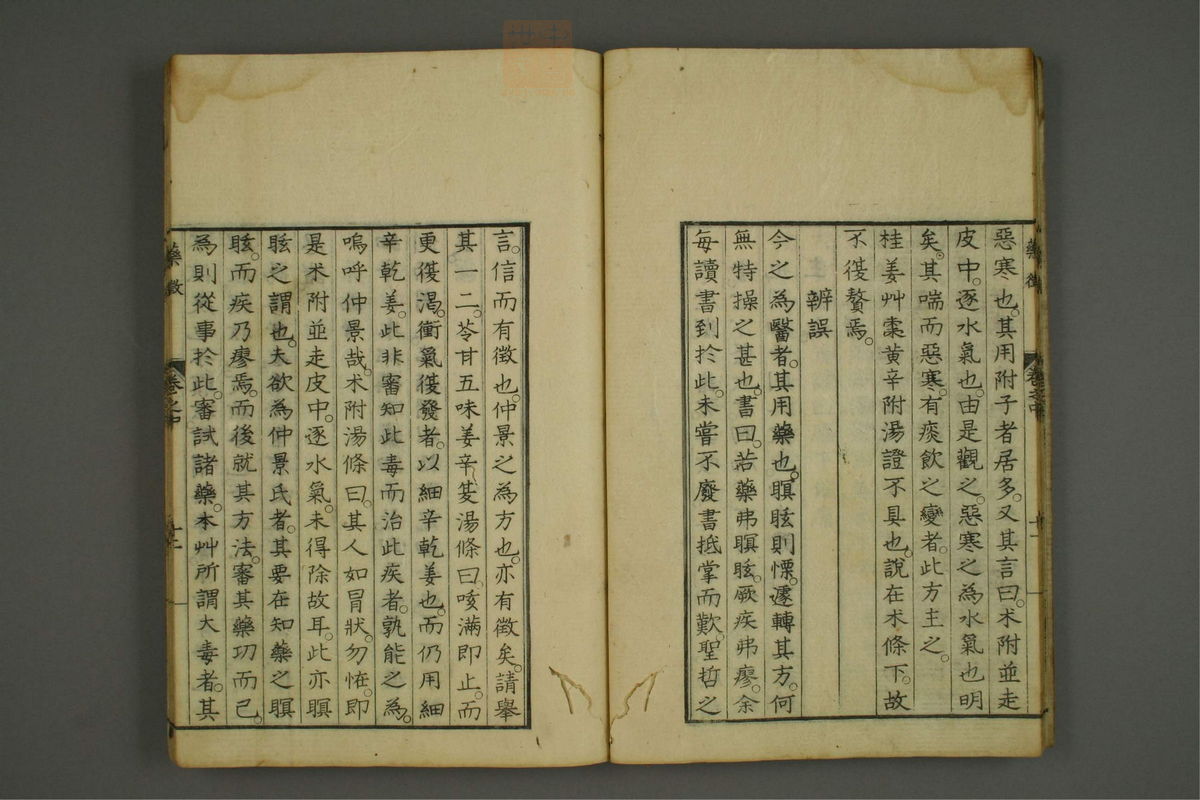 藥徵
卷之中
惡寒也。其用附子者居多。又其言曰。朮附並走
皮中。逐水氣也。由是觀之。惡寒之為水氣也明
矣。其喘而惡寒。有痰飲之變者。此方主之。
桂姜艸棗黄辛附湯證不具也。說在朮條下。故
不復贅焉。
辨誤
今之為醫者。其用藥也。瞑眩則慄。遽轉其方。何
無特操之甚也。書曰。若藥弗瞑眩。厥疾弗瘳。余
每讀書到於此。未嘗不廢書抵掌而歎。聖哲之
言。信而有徵也。仲景之為方也。亦有徵矣。請舉
其一二。苓甘五味姜辛湯條曰。咳滿即止。而
更復渴。衝氣復發者。以細辛乾姜也。而仍用細
辛乾姜。此非審知此毒而治此疾者。孰能之為。
嗚呼仲景哉。朮附湯條曰。其人如冒狀。勿怪。即
是朮附並走皮中。逐水氣。未得除故耳。此亦瞑
眩之謂也。夫欲為仲景氏者。其要在知藥之瞑
眩。而疾乃瘳焉。而後就其方法。審其藥功而已。
為則從事於此。審試諸藥。本艸所謂大毒者。其
藥徵
卷之中